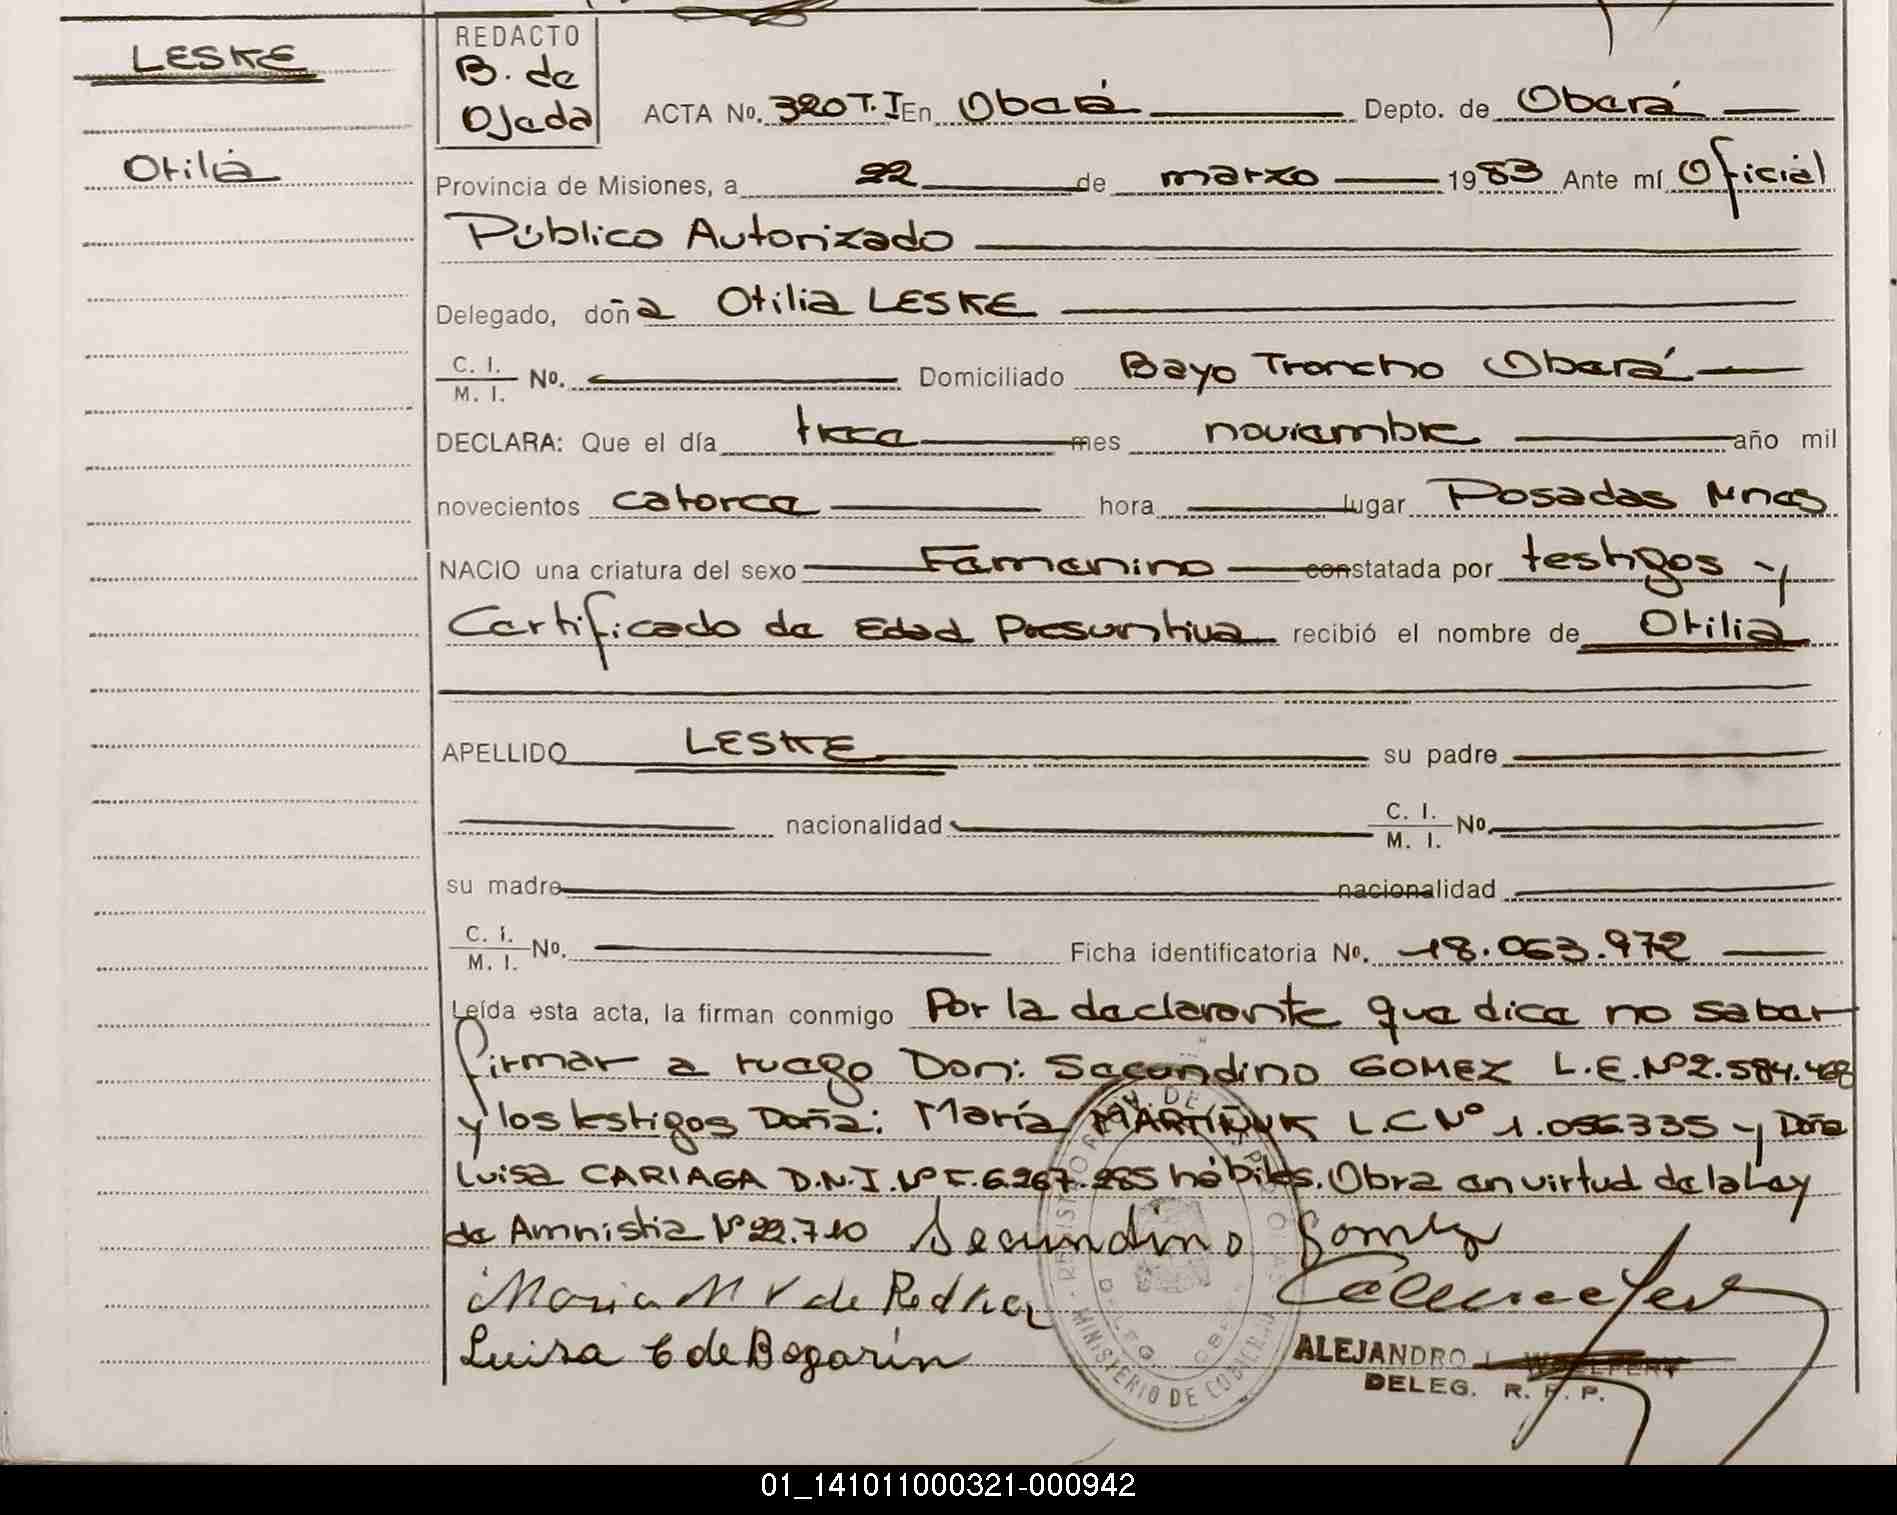 LESKE
Otilia
REDACTO
B. de
Ojeda
ACTA No. 320 T. I En Oberá Depto. de Oberá
Provincia de Misiones, a 22 de marzo 1983 Ante mí Oficial
Público Autorizado
Delegado, doña Otilia LESKE
C. I.
M. I. No. Domiciliado Bayo Troncho Oberá
DECLARA: Que el día trece mes noviembre año mil
novecientos catorce hora lugar Posadas Mnes
NACIO una criatura del sexo Femenino constatada por testigos y
Certificado de Edad Presuntiva recibió el nombre de Otilia
APELLIDO LESKE su padre
nacionalidad C. I. M. I. No.
su madre nacionalidad
C. I.
M. I. No. Ficha identificatoria No. 18.063.972
Leída esta acta, la firman conmigo Por la declarante que dice no saber
firmar a ruego Don: Secundino GOMEZ L.E. Nº 2.584.468
y los testigos Doña: María MARTIÑUK L.C Nº 1.056.335 y Doña
Luisa CARIAGA D.N.I. Nº F. 6.267.285 hábiles. Obra en virtud de la Ley
de Amnistia Nº 22.710 Secundino Gomez
Maria M V de
Luisa C de Bogarín
ALEJANDRO
DELEG. R. P. P.
MINISTERIO DE
01_141011000321-000942